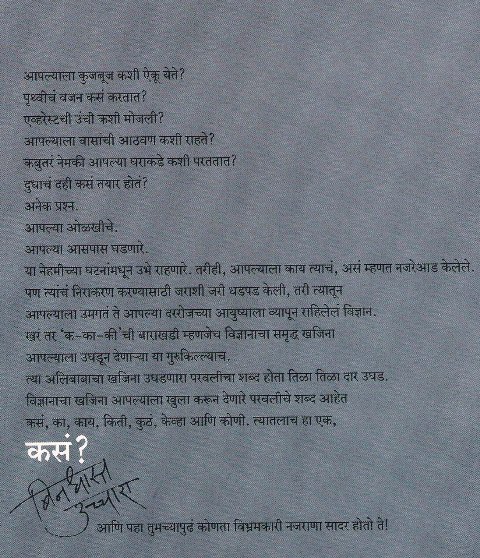 आपल्याला कुजबूज कशी ऐकू येते?
पृथ्वीचं वजन कसं करतात?
एव्हरेस्टची उंची कशी मोजली?
आपल्याला वासांची आठवण कशी राहते?
कबुतरं नेमकी आपल्या घराकडे कशी परततात?
दुधाचं दही कसं तयार होतं?
अनेक प्रश्न.
आपल्या ओळखीचे.
आपल्या आसपास घडणारे.
या नेहमीच्या घटनांमधून उभे राहणारे. तरीही, आपल्याला काय त्याचं, असं म्हणत नजरेआड केलेले.
पण त्यांचं निराकरण करण्यासाठी जराशी जरी धडपड केली, तरी त्यातून
आपल्याला उमगतं ते आपल्या दररोजच्या आयुष्याला व्यापून राहिलेलं विज्ञान.
खरं तर 'क-का-की'ची बाराखडी म्हणजेच विज्ञानाचा समृद्ध खजिना
आपल्याला उघडून देणाऱ्या या गुरुकिल्ल्याच.
त्या अलिबाबाचा खजिना उघडणारा परवलीचा शब्द होता तिळा तिळा दार उघड.
विज्ञानाचा खजिना आपल्याला खुला करून देणारे परवलीचे शब्द आहेत
कसं, का, काय, किती, कुठं, केव्हा आणि कोणी. त्यातलाच हा एक,
कसं?
बिनधास्त
उच्चारा
आणि पहा तुमच्यापुढे कोणता विभ्रमकारी नजराणा सादर होतो ते!